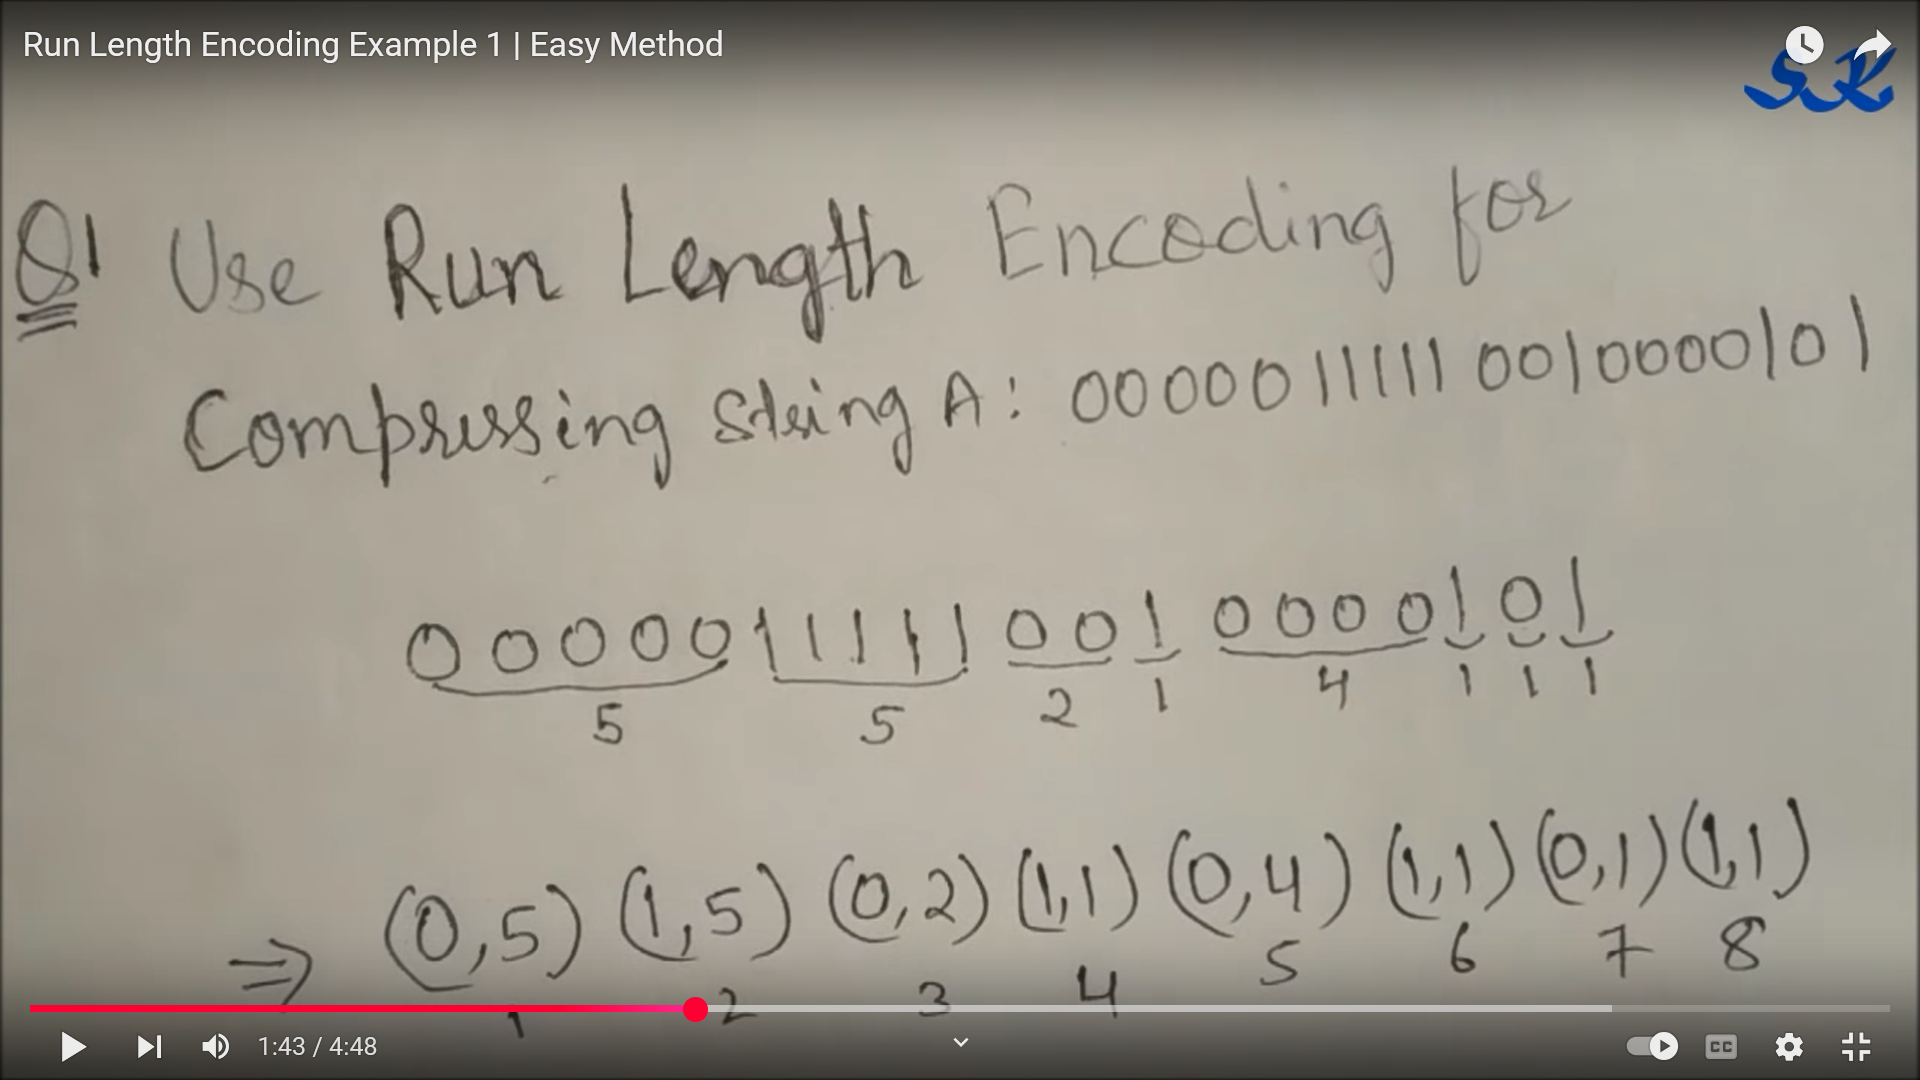 Run Length Encoding Example 1 | Easy Method
SR
Q1 Use Run Length Encoding for
Compressing String A: 00000 11111 00100001 0 1
00000 11111 00 1 0000 1 0 1
5 5 2 1 4 1 1 1
⇒ (0,5) (1,5) (0,2) (1,1) (0,4) (1,1) (0,1) (1,1)
1 2 3 4 5 6 7 8
1:43 / 4:48
CC